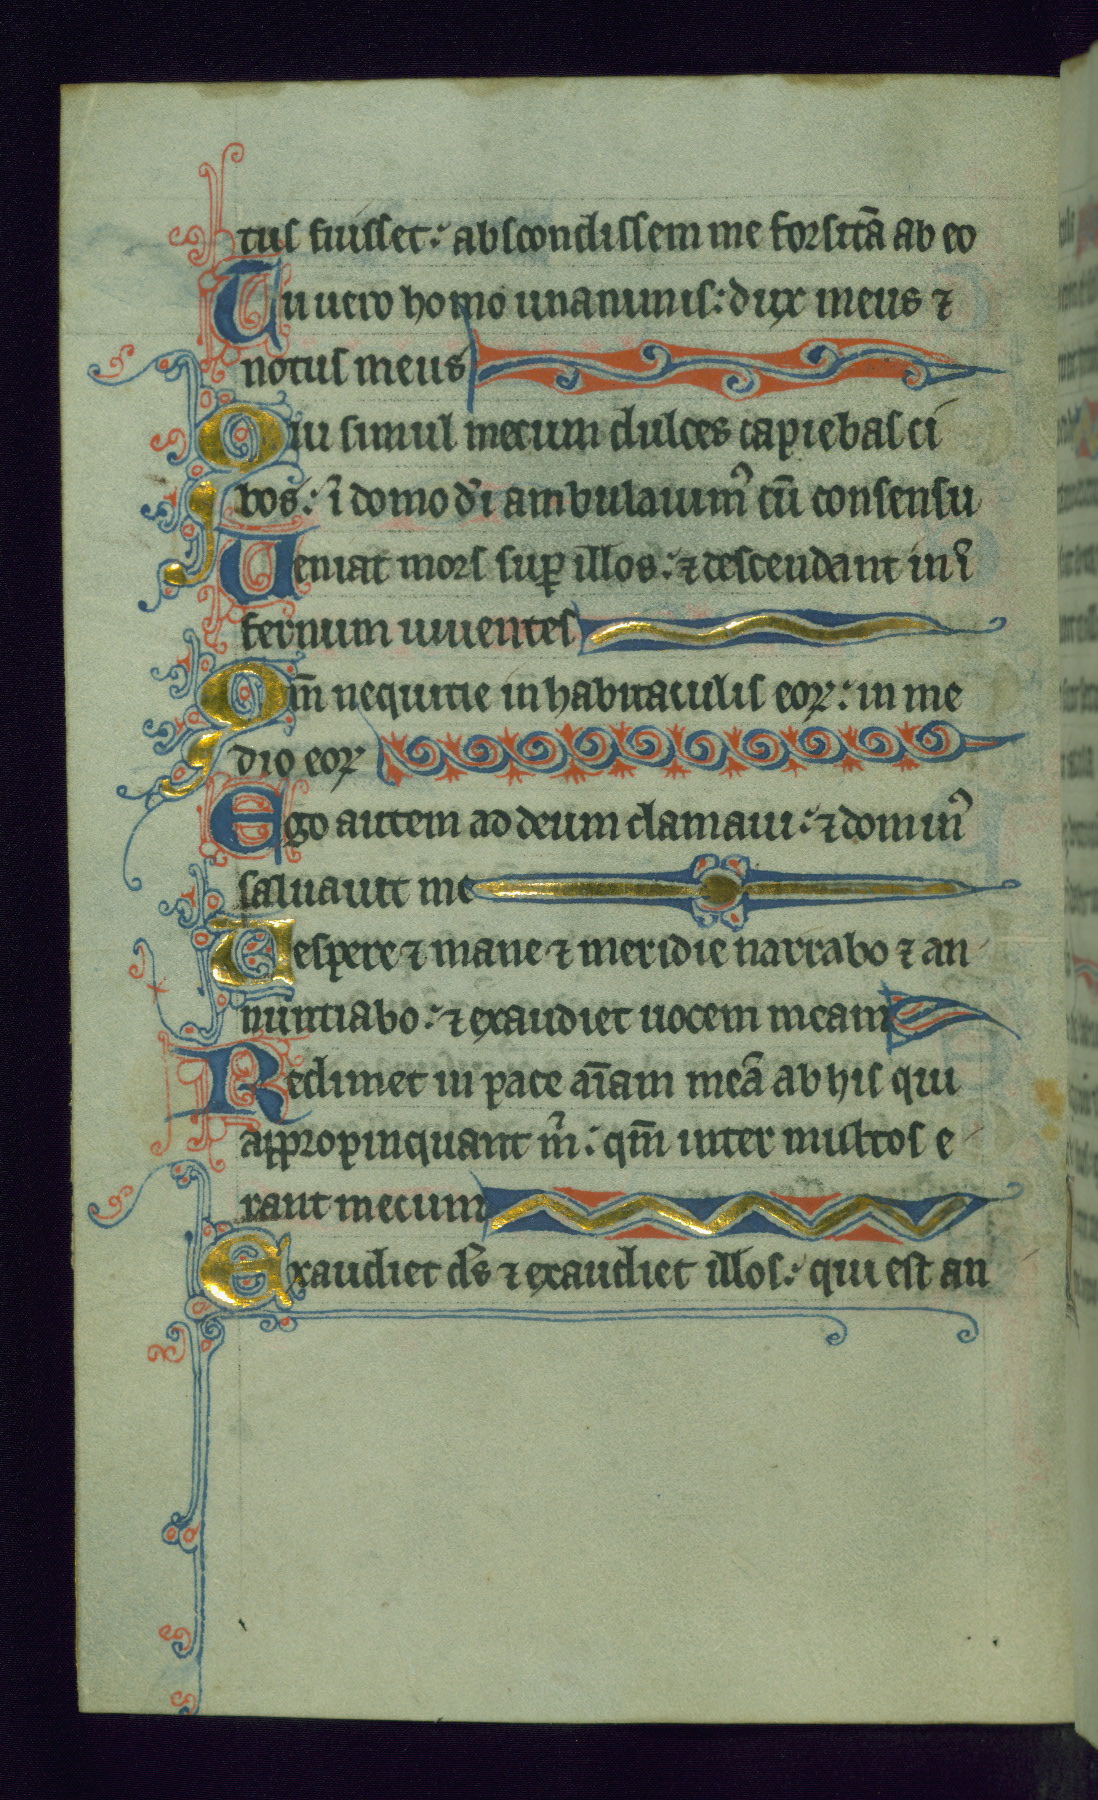 tus fuisset: abscondissem me forsitã ab eo
Tu uero homo unanimis: dux meus ⁊
notus meus
Qui simul mecum dulces capiebas ci
bos: ĩ domo dĩ ambulauimꝰ cũ consensu
Ueniat mors suꝑ illos: ⁊ descendant in ĩ
fernum uiuentes
Qm̃ nequitie in habitaculis eoꝝ: in me
dio eoꝝ
Ego autem ad deum clamaui: ⁊ dominꝰ
saluauit me
Uespere ⁊ mane ⁊ meridie narrabo ⁊ an
nuntiabo: ⁊ exaudiet uocem meam
Redimet in pace aĩam meã ab his qui
appropinquant m̃: qm̃ inter multos e
rant mecum
Exaudiet ds̃ ⁊ exaudiet illos: qui est an